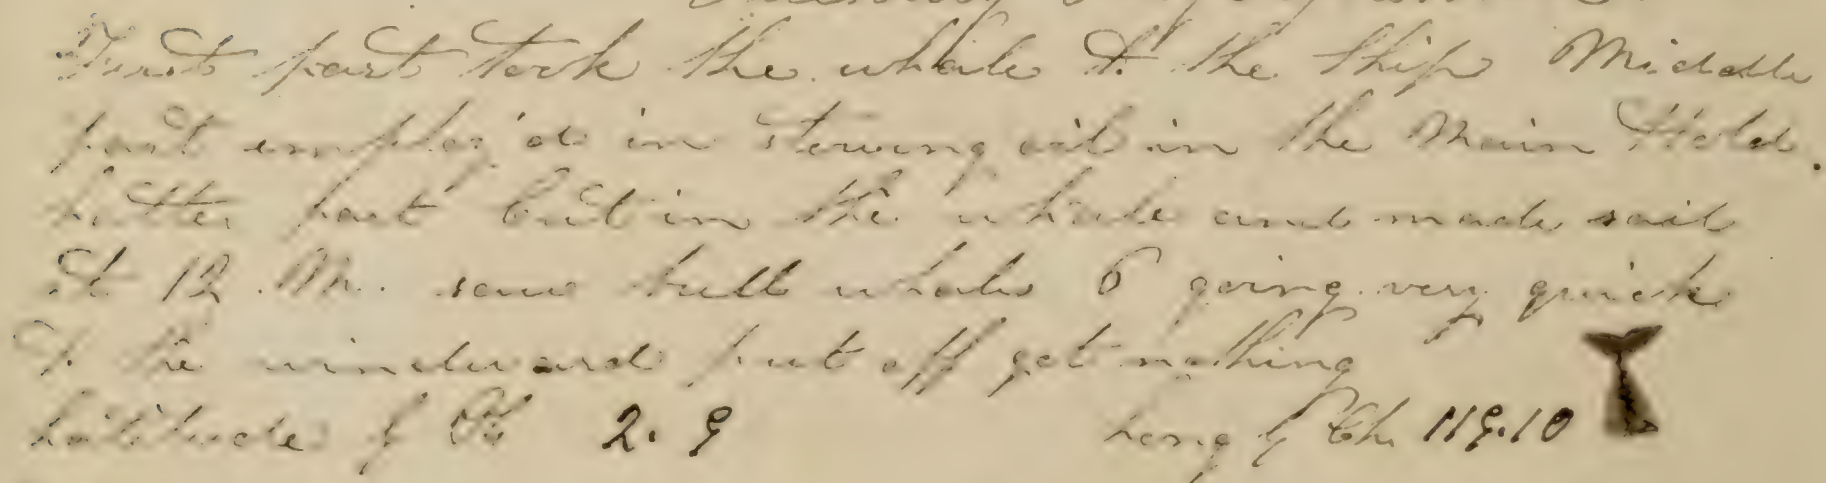 First part took the whale to the Ship Middle
part employ'd in stowing oil in the Main Hold.
Latter part cut in the whale and made sail
At 12 M. saw bull whales 6 going very quick
To the windward put off got nothing
Latitude by Ob 2.9 Long by Chr 119.10